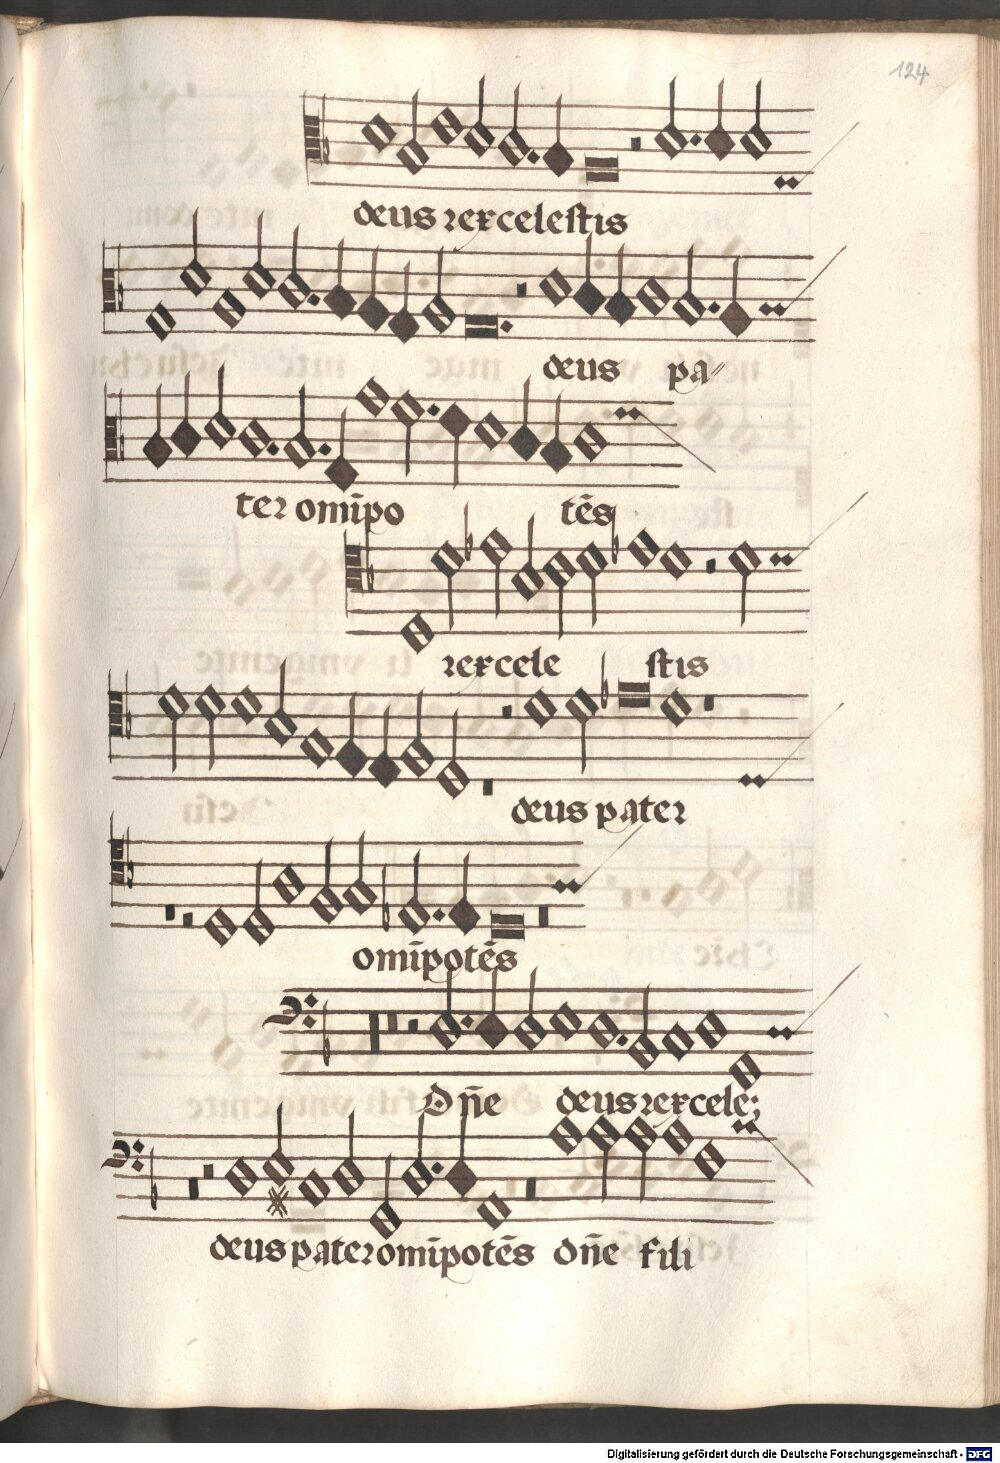 124
deus rex celestis
deus pa
ter om̄ipo tēs
rex cele stis
deus pater
om̄ipotēs
Dn̄e deus rex cele;
deus pater om̄ipotēs dn̄e fili
Digitalisierung gefördert durch die Deutsche Forschungsgemeinschaft - DFG